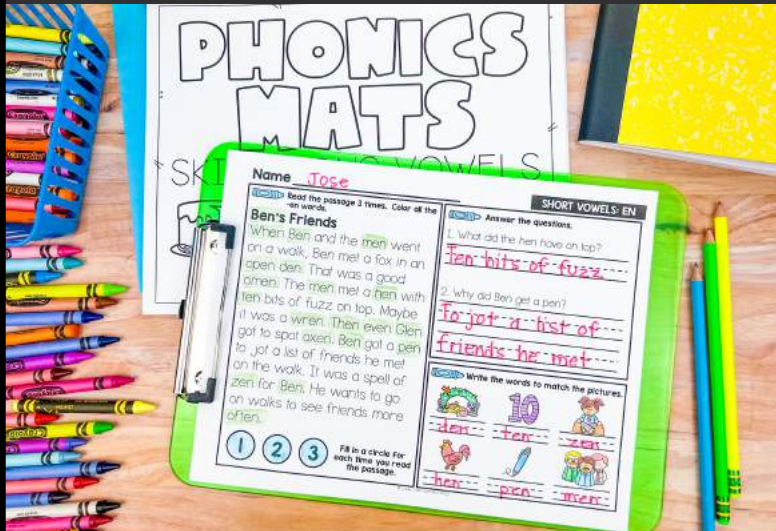 PHONICS
MATS
VOWELS
Name Jose
SHORT VOWELS: EN
Read the passage 3 times. Color all the
-en words.
Ben's Friends
When Ben and the men went
on a walk, Ben met a fox in an
open den. That was a good
omen. The men met a hen with
ten bits of fuzz on top. Maybe
it was a wren. Then even Glen
got to spot oxen. Ben got a pen
to jot a list of friends he met
on the walk. It was a spell of
zen for Ben. He wants to go
on walks to see friends more
often.
1 2 3
Fill in a circle for
each time you read
the passage.
Answer the questions.
1. What did the hen have on top?
Ten bits of fuzz
2. Why did Ben get a pen?
To jot a list of
friends he met
Write the words to match the pictures.
10
den ten zen
hen pen men
Crayola